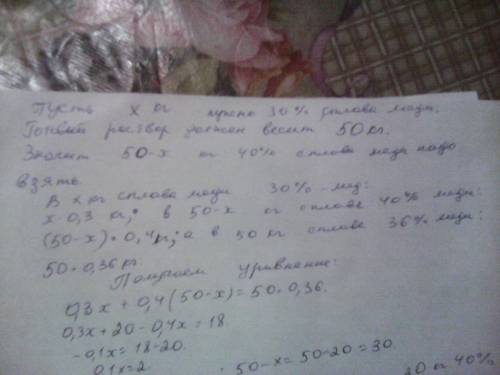 Пусть x кг нужно 30% сплава меди.
Готовый раствор должен весит 50 кг.
Значит 50-x кг 40% сплава меди надо
взять.
В x кг сплава меди 30% -мед:
x·0,3 кг; в 50-x кг сплаве 40% меди:
(50-x)·0,4 кг; а в 50 кг сплаве 36% меди:
50·0,36 кг.
Получаем уравнение:
0,3x + 0,4(50-x) = 50·0,36.
0,3x + 20 - 0,4x = 18.
-0,1x = 18-20.
0,1x = 2.
50-x = 50-20 = 30.
30 кг 40%